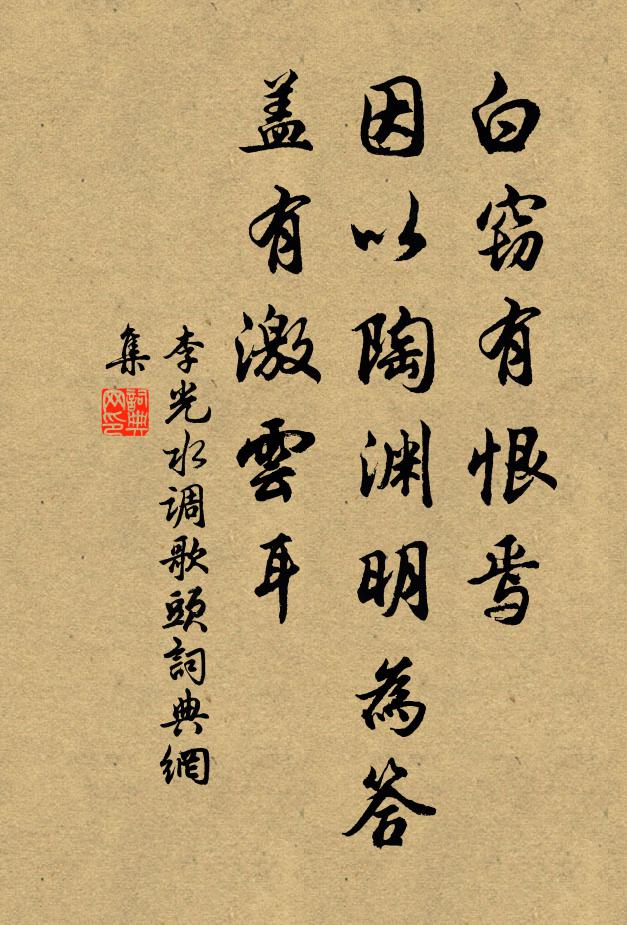 白窃有恨焉
因以陶渊明為答
盖有激雲耳
李光水调歌頭詞典網
集
詞典
网印